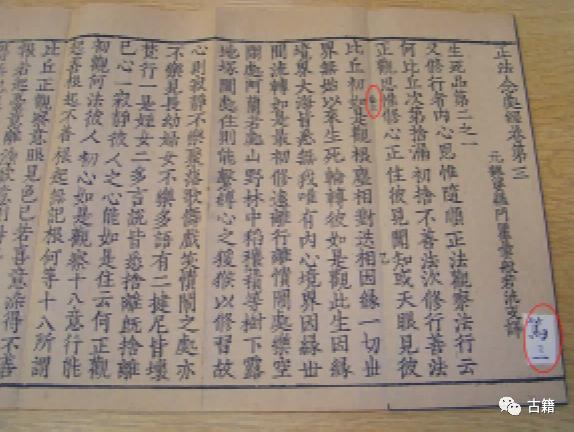 正法念處經卷第三
元魏婆羅門瞿曇般若流支譯
生死品第二之一
又修行者内心思惟隨順正法觀察法行云
何比丘次第捨漏初捨不善法次修行善法
正觀思惟修心正住彼見聞知或天眼見彼
比丘初如是觀根塵相對迭相因緣一切世
界無始以來生死輪轉彼如是觀此生因緣
境界大海皆悉無我唯有内心境界因緣世
間流轉如是最初修遠離行離憒閙處樂空
閑處阿蘭若處山野林中稻積等樹下露
地塚間處住則能繫縛心之猨猴以修習故
心則寂靜不樂聚落歌舞戲笑憒閙之處亦
不樂見長幼婦女不樂多語有二揵尼皆壞
梵行一是婬女二多言說皆悉捨離既捨離
已心一寂靜彼人之心能如是住云何正觀
初觀何法彼人初心如是觀察十八意行能
起善根起不善根起無記根何等十八所謂
比丘正觀察意眼見色已若喜意染得不善
根若起憂意離染欲意則得善
古籍